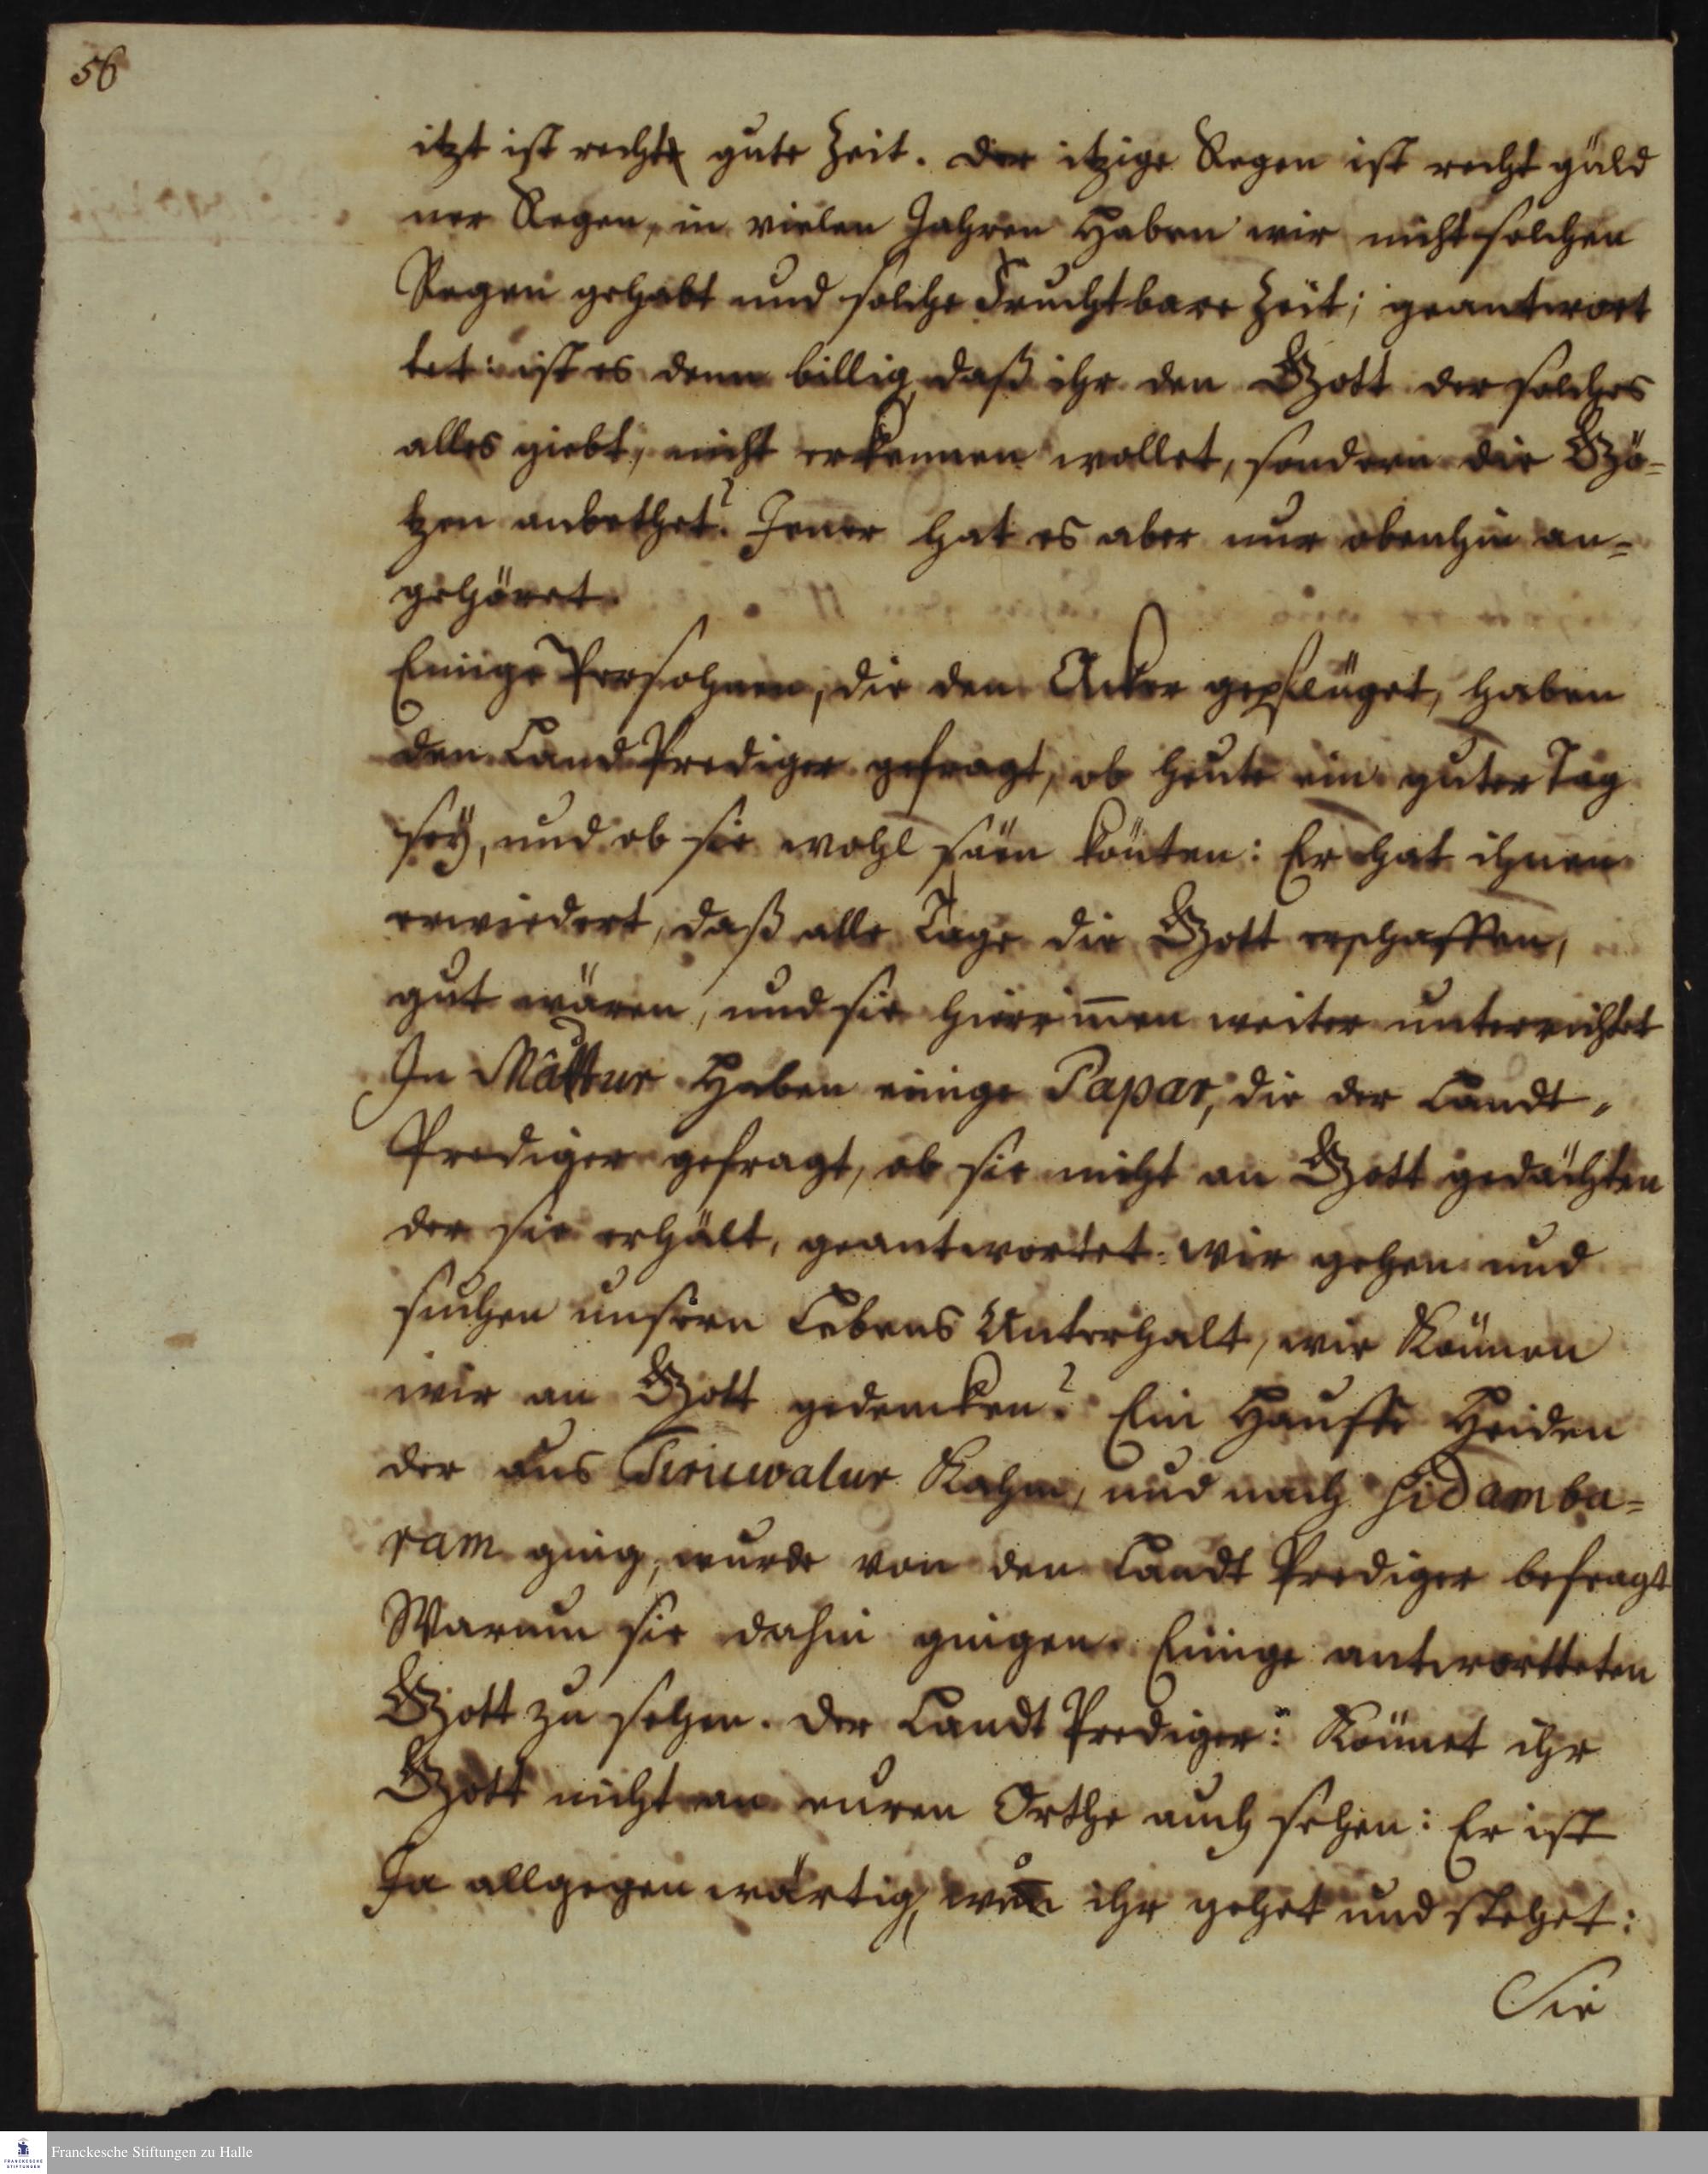 56
itzt ist recht gute Zeit. Der itzige Regen ist recht güld
ner Regen, in vielen Jahren Haben wir nicht solchen
Regen gehabt und solche Fruchtbare Zeit; geantwort
tet: ist es denn billig, daß ihr den Gott der solches
alles giebt, nicht erkennen wollet, sondern die Gö-
tzen anbethet? Jener hat es aber nur obenhin an-
gehöret.
Einige Persohnen, die den Acker gepflüget, haben
den Land Prediger gefragt, ob heute ein guter Tag
seÿ, und ob sie wohl säen könten: Er hat ihnen
erwiedert, daß alle Tage die Gott erschaffen,
gut wären, und sie hierinnen weiter unterrichtet
In Haben einige Papar, die der Landt-
Prediger gefragt, ob sie nicht an Gott gedächten
der sie erhält, geantwortet: wir gehen und
suchen unsern Lebens Unterhalt, wie Können
wir an Gott gedencken? Ein Hauffe Heiden
der aus Tiruwalur Kahm, und nach Sidamba-
ram ging, wurde von den Landt Prediger befragt
Warum sie dahin gingen. Einige antwortteten
Gott zu sehen. Der Landt Prediger: Könnet ihr
Gott nicht an euren Orthe auch sehen: Er ist
Ja allgegenwärtig, wo ihr gehet und stehet:
Sie
Franckesche Stiftungen zu Halle
FRANCKESCHE
STIFTUNGEN